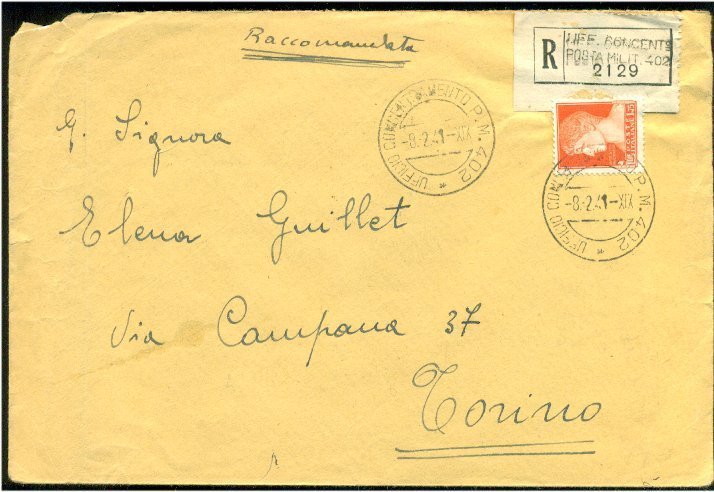 Raccomandata
R
UFF. CONCENTR
POSTA MILIT. 402
2129
G. Signora
Elena Guillet
Via Campana 37
Torino
UFFICIO CONCENTRAMENTO P.M. 402 *
-8.2.41-XIX
POSTE
ITALIANE
UFFICIO CONCE P.M. 402 *
-8.2.41-XIX